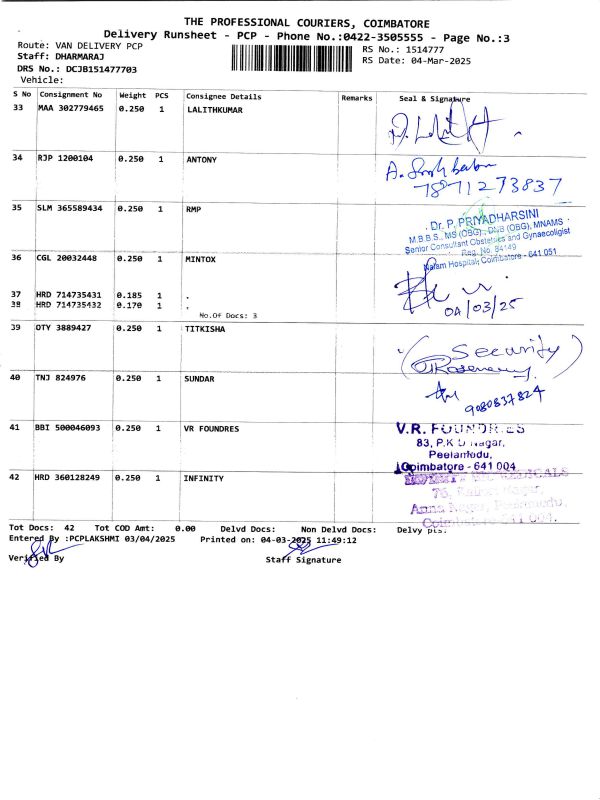 THE PROFESSIONAL COURIERS, COIMBATORE
Delivery Runsheet - PCP - Phone No.:0422-3505555 - Page No.:3
Route: VAN DELIVERY PCP
RS No.: 1514777
Staff: DHARMARAJ
RS Date: 04-Mar-2025
DRS No.: DCJB151477703
Vehicle:
S No Consignment No Weight PCS Consignee Details Remarks Seal & Signature
33 MAA 302779465 0.250 1 LALITHKUMAR
34 RJP 1200104 0.250 1 ANTONY
78712 73837
35 SLM 365589434 0.250 1 RMP
Dr. P. PRIYADHARSINI
M.B.B.S., MS (OBG)., DNB (OBG), MNAMS
Senior Consultant Obstetrics and Gynaecoligist
Reg. No. 84149
Nalam Hospital, Coimbatore - 641 051
36 CGL 20032448 0.250 1 MINTOX
04/03/25
37 HRD 714735431 0.185 1 .
38 HRD 714735432 0.170 1 .
No.Of Docs: 3
39 OTY 3889427 0.250 1 TITKISHA
(Security)
40 TNJ 824976 0.250 1 SUNDAR
9080837824
41 BBI 500046093 0.250 1 VR FOUNDRES
V.R. FOUNDRIES
83, P.K.D Nagar,
Peelamedu,
Coimbatore - 641 004
42 HRD 360128249 0.250 1 INFINITY
Anna Nagar, Peelamedu,
Coimbatore - 641 004.
Tot Docs: 42 Tot COD Amt: 0.00 Delvd Docs: Non Delvd Docs: Delvy pts:
Entered By :PCPLAKSHMI 03/04/2025 Printed on: 04-03-2025 11:49:12
Verified By Staff Signature